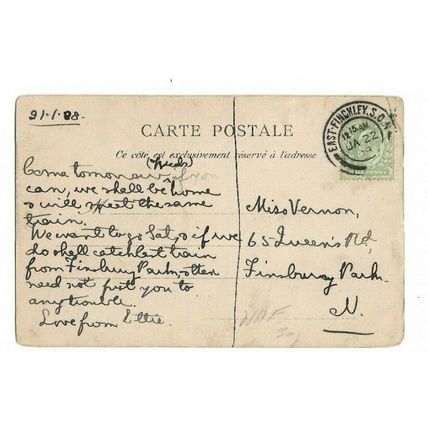 21.1.08.
EAST-FINCHLEY. S.O.
12.15 AM
JA 22
CARTE POSTALE
Ce côté est exclusivement réservé à l'adresse
(Weds)
Come tomorrow if you
can, we shall be home
so will meet the same
train.
We want to go Sat, so if we
do shall catch last train
from Finsbury Park, so
need not put you to
any trouble.
Love from Ettie.
Miss Vernon,
65 Queen's Rd,
Finsbury Park
N.